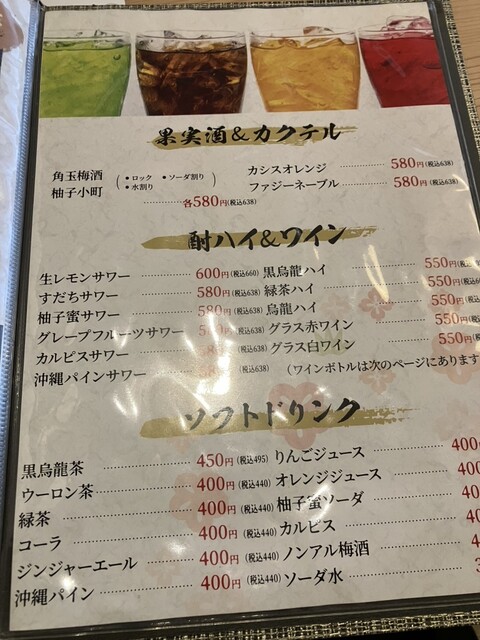 果実酒&カクテル
角玉梅酒
柚子小町
(•ロック •ソーダ割り
•水割り)
各580円(税込638)
カシスオレンジ 580円(税込638)
ファジーネーブル 580円(税込638)
酎ハイ&ワイン
生レモンサワー 600円(税込660)
すだちサワー 580円(税込638)
柚子蜜サワー 580円(税込638)
グレープフルーツサワー 円(税込638)
カルピスサワー 580円(税込638)
沖縄パインサワー 580円(税込638)
黒烏龍ハイ 550円(税込
緑茶ハイ 550円(税込60
烏龍ハイ 550円(税込
グラス赤ワイン 550円(税込
グラス白ワイン 550円(税込
(ワインボトルは次のページにあります
ソフトドリンク
黒烏龍茶 450円(税込495)
ウーロン茶 400円(税込440)
緑茶 400円(税込440)
コーラ 400円(税込440)
ジンジャーエール 400円(税込440)
沖縄パイン 400円(税込440)
りんごジュース 400
オレンジジュース 400
柚子蜜ソーダ 400
カルピス 40
ノンアル梅酒 4
ソーダ水 3